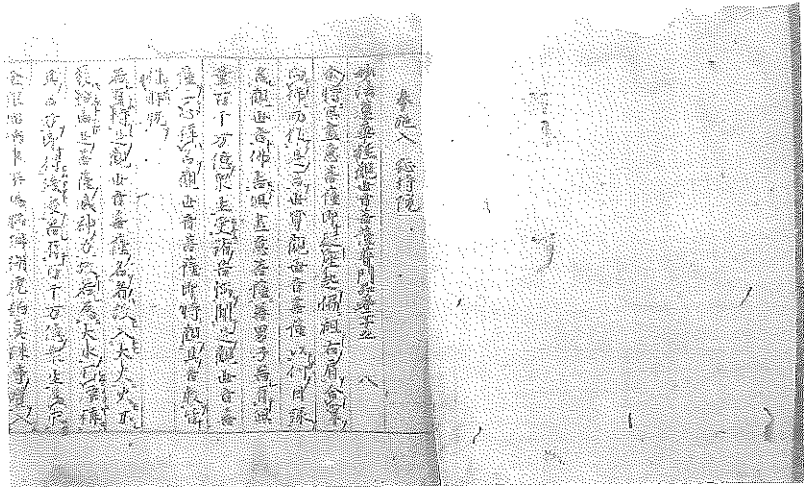 奉施入 院
妙法蓮華經觀世音菩薩普門品第廿五 八
尒時无盡意菩薩即從座起偏袒右肩合掌
向佛而作是言世尊觀世音菩薩以何因緣
名觀世音佛告無盡意菩薩善男子若有無
量百千万億眾生受諸苦惱聞是觀世音菩
薩一心稱名觀世音菩薩即時觀其音聲皆
得解脫
若有持是觀世音菩薩名者設入大火火不
能燒由是菩薩威神力故若為大水所漂稱
其名号即得淺處若有百千万億眾生為求
金銀瑠璃車𤦲馬瑙珊瑚琥珀真珠等寶入